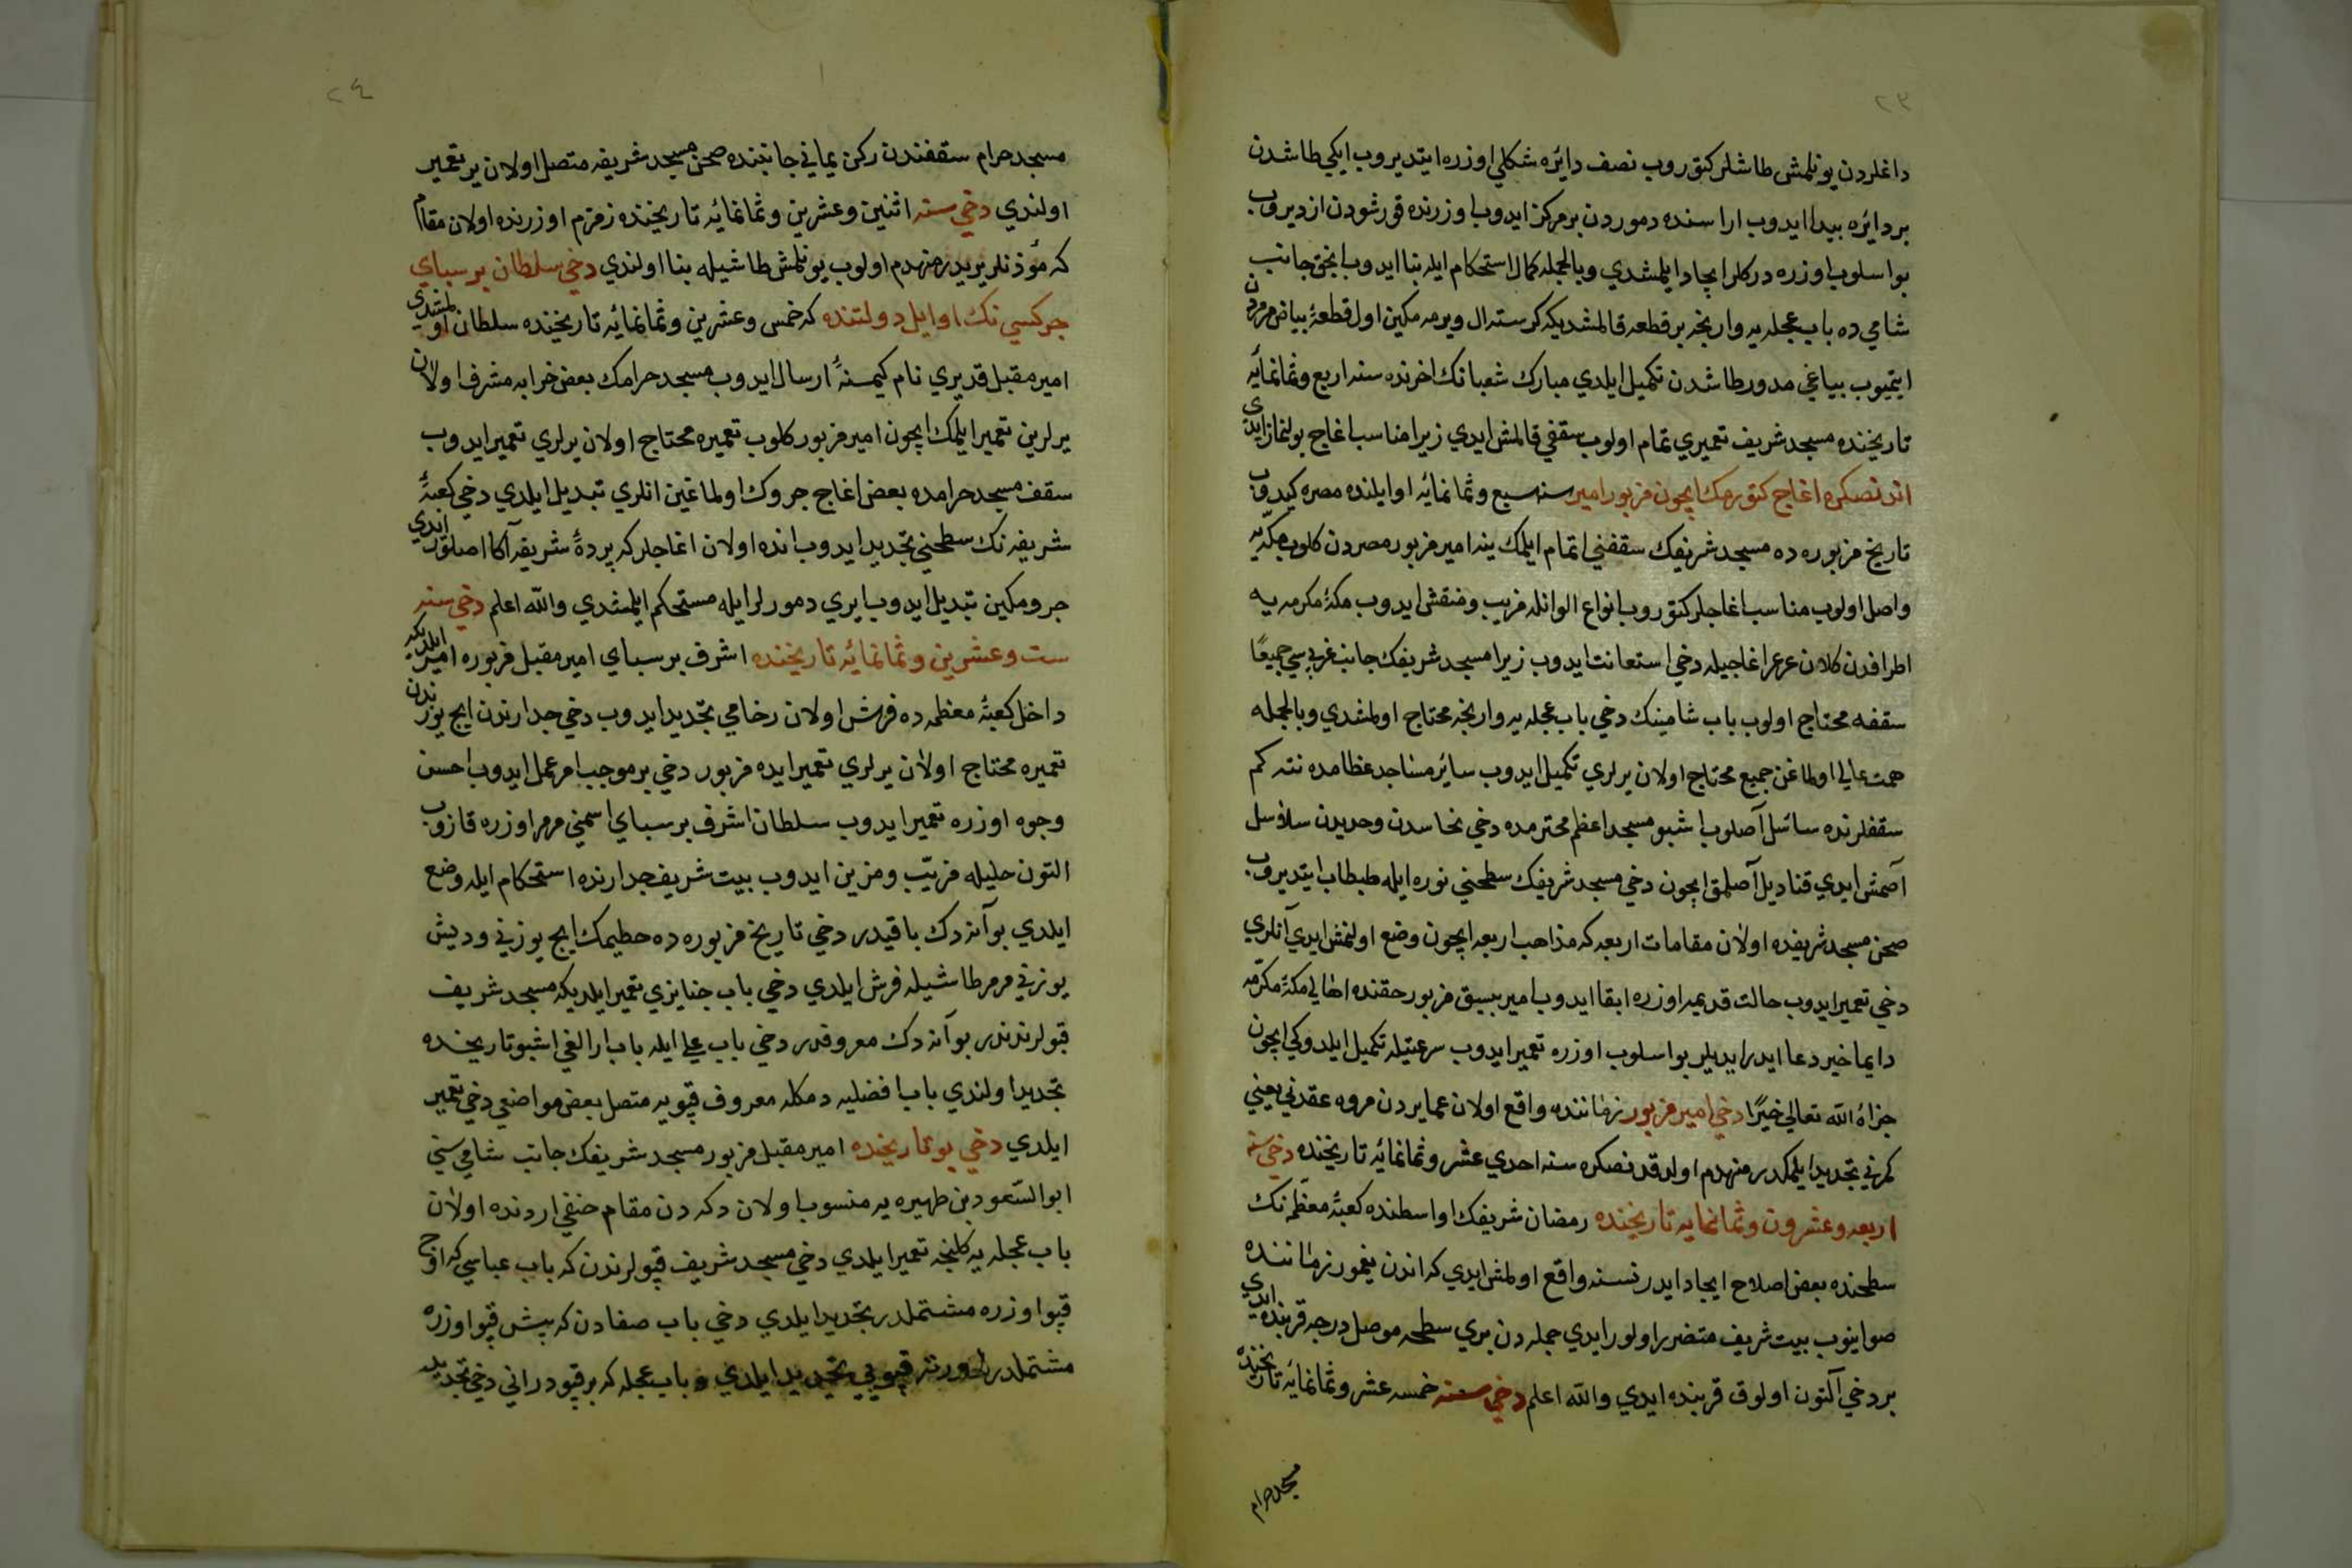 ٢٣
داغلردن یونلمش طاشلر کتوروب نصف دائره شکلي اوزره ایتدیروب ایکي طاشدن
بر دائره بیدا ایدوب اراسنده دموردن بر مرکز ایدوب اوزرنده قورشودن ازدیروب
بو اسلوب اوزره درکلر ایجاد ایلمشدي وبالجمله کمال استحکام ایله بنا ایدوب انجق جانب
شامي ده باب عجله یه وارنجه بر قطعه قالمشدیکه کرسته ال ویرمه مکین اول قطعۀ بیاض مرمردن
ایتمیوب بیاغي مدور طاشدن تکمیل ایلدي مبارك شعبانك اخرنده سنه اربع وثمانمائه
تاریخنده مسجد شریف تعمیري تمام اولوب سقفي قالمش ایدي زیرا مناسب اغاج بولنماز ایدی
اندنصکره اغاج کتورمك ایچون مزبور امیر سنه سبع وثمانمائه اوایلنده مصره کیدوب
تاریخ مزبوره ده مسجد شریفك سقفني اتمام ایلمك ینه امیر مزبور مصردن کلوب مکّه یه
واصل اولوب مناسب اغاجلر کتوروب انواع الوانله مزیب ومنقش ایدوب مکۀ مکرمه یه
اطرافدن کلان عرعر اغاجیله دخي استعانت ایدوب زیرا مسجد شریفك جانب غربیسي جمیعًا
سقفه محتاج اولوب باب شامینك دخي باب عجله یه وارنجه محتاج اولمشدي وبالجمله
همت عالي اولماغن جمیع محتاج اولان یرلري تکمیل ایدوب سائر مساجد عظامده نته کم
سقفلرنده سائسل آصلوب اشبو مسجد اعظم محترمده دخي نحاسدن وحدیدن سلاسل
آصمش ایدي قنادیل آصلمق ایچون دخي مسجد شریفك سطحني نوره ایله طبطاب ایتدیروب
صحن مسجد شریفده اولان مقامات اربعه که مذاهب اربعه ایچون وضع اولنمش ایدي آنلري
دخي تعمیر ایدوب حالت قدیمه اوزره ابقا ایدوب امیر بیسق مزبور حقنده اهالي مکۀ مکرّمه
دایما خیر دعا ایدر ایدیلر بو اسلوب اوزره تعمیر ایدوب سرعتیله تکمیل ایلدوکي ایچون
جزاهُ الله تعالي خیرًا دخي امیر مزبور زماننده واقع اولان عمایردن مروه عقدني یعني
کمرني تجدید ایلمکدر منهدم اولدقدنصکره سنه احدي عشر وثمانمائه تاریخنده دخي سنه
اربعه وعشرون وثمانمایه تاریخنده رمضان شریفك اواسطنده کعبۀ معظّمه نك
سطحنده بعض اصلاح ایجاد ایدر نسنه واقع اولمش ایدي که اندن یغمور زماننده
صو اینوب بیت شریف متضرر اولور ایدي جمله دن بري سطحه موصل درجه قربنده ایدی
بر دخي آلتون اولوق قربنده ایدي والله اعلم دخي سنه خمسه عشر وثمانمائه تاریخنده
مسجد حرام
٢٤
مسجد حرام سقفندن رکن یماني جانبنده صحن مسجد شریفه متصل اولان یر تعمیر
اولندي دخي سنه اثنین وعشرین وثمانمائه تاریخنده زمزم اوزرنده اولان مقام
که مؤذنلر یریدر منهدم اولوب یونلمش طاشیله بنا اولندي دخي سلطان برسباي
جرکسي نك اوایل دولتنده که خمس وعشرین وثمانمائه تاریخنده سلطان اولمشدی
امیر مقبل قدیري نام کیمسنۀ ارسال ایدوب مسجد حرامك بعض خرابه مشرف اولان
یرلرین تعمیر ایلمك ایچون امیر مزبور کلوب تعمیره محتاج اولان یرلري تعمیر ایدوب
سقف مسجد حرامده بعض اغاج جروك اولماغین انلري تبدیل ایلدي دخي کعبۀ
شریفه نك سطحني تجدید ایدوب انده اولان اغاجلر که پردۀ شریفه آکا اصلور ایدي
جرومکین تبدیل ایدوب ایري دمورلر ایله مستحکم ایلمشدي والله اعلم دخي سنه
ست وعشرین وثمانمائه تاریخنده اشرف برسباي امیر مقبل مزبوره امیر ایلدیکه
داخل کعبۀ معظمه ده فرش اولان رخامي تجدید ایدوب دخي جدارندن ایچ یوزندن
تعمیره محتاج اولان یرلري تعمیر ایده مزبور دخي بر موجب امر عمل ایدوب احسن
وجوه اوزره تعمیر ایدوب سلطان اشرف برسباي اسمني مرمر اوزره قازوب
التون حلیله مزیّب ومزین ایدوب بیت شریف جدارنده استحکام ایله وضع
ایلدي بو آنه دك باقیدر دخي تاریخ مزبوره ده حطیمك ایچ یوزني ودیش
یوزني مرمر طاشیله فرش ایلدي دخي باب جنایزي تعمیر ایلدیکه مسجد شریف
قپولرندندر بو آنه دك معروفدر دخي باب علي ایله باب ارالغي اشبو تاریخنده
تجدید اولندي باب افضلیه دمکله معروف قپویه متصل بعض مواضعي دخي تعمیر
ایلدي دخي بو تاریخنده امیر مقبل مزبور مسجد شریفك جانب شامي سني
ابو السّعود بن ظهیره یه منسوب اولان دکه دن مقام حنفي اردنده اولان
باب عجله یه کلنجه تعمیر ایلدي دخي مسجد شریف قپولرندن که باب عباسي که اوچ
قپو اوزره مشتملدر تجدید ایلدي دخي باب صفادن که بیش قپو اوزره
مشتملدر اورته قپویي تجدید ایلدي و باب عجله که بر قپودر اني دخي تجدید